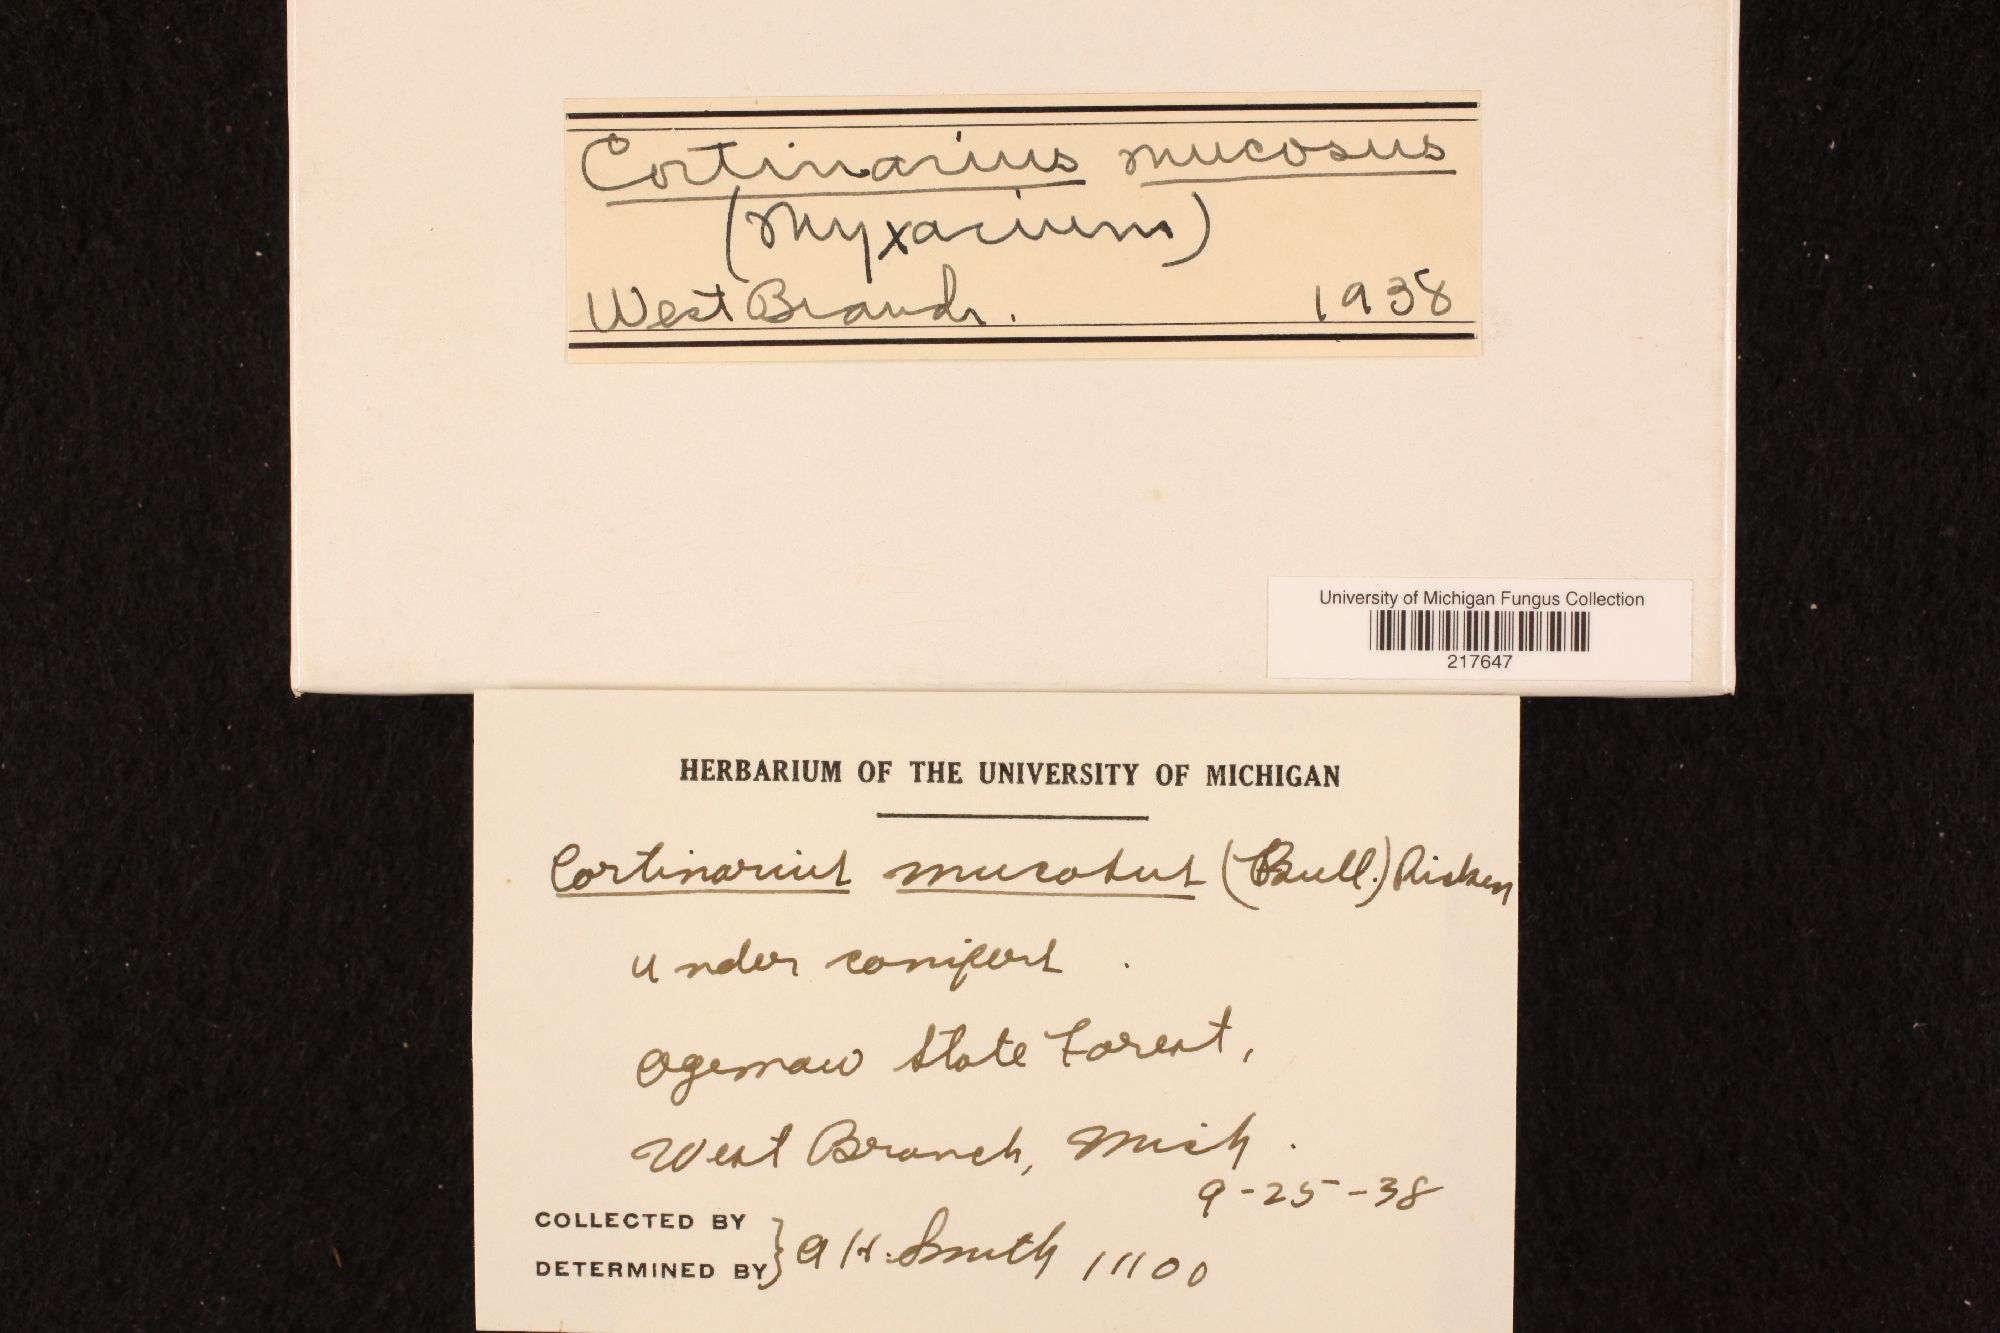 Cortinarius mucosus
(Myxacium)
West Branch. 1938
University of Michigan Fungus Collection
217647
HERBARIUM OF THE UNIVERSITY OF MICHIGAN
Cortinarius mucosus (Bull.) Ricken
under conifers.
Ogemaw State Forest,
West Branch, Mich.
9-25-38
COLLECTED BY
DETERMINED BY } A H. Smith 11100